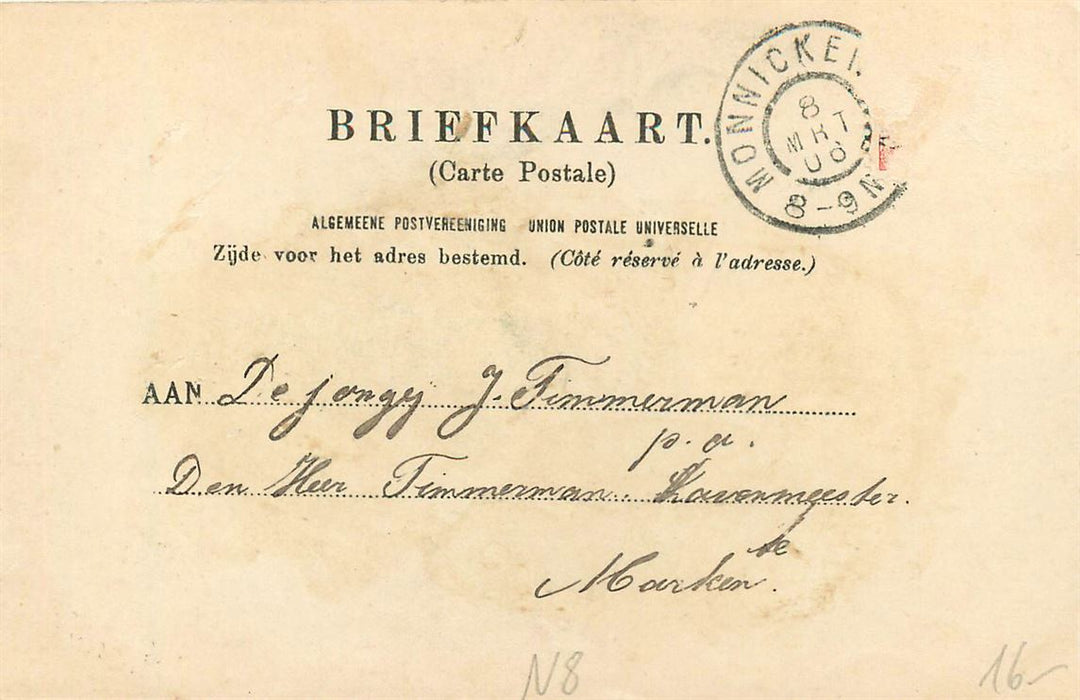 BRIEFKAART.
(Carte Postale)
ALGEMEENE POSTVEREENIGING UNION POSTALE UNIVERSELLE
Zijde voor het adres bestemd. (Côté réservé à l'adresse.)
MONNICKE
8
MRT
06
8-9N
AAN De jongej J. Timmerman
p. a.
Den Heer Timmerman. Havenmeester.
te
Marken.
N8
16-